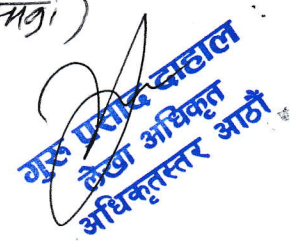 गुरु प्रसाद दाहाल
लेखा अधिकृत
अधिकृतस्तर आठौं